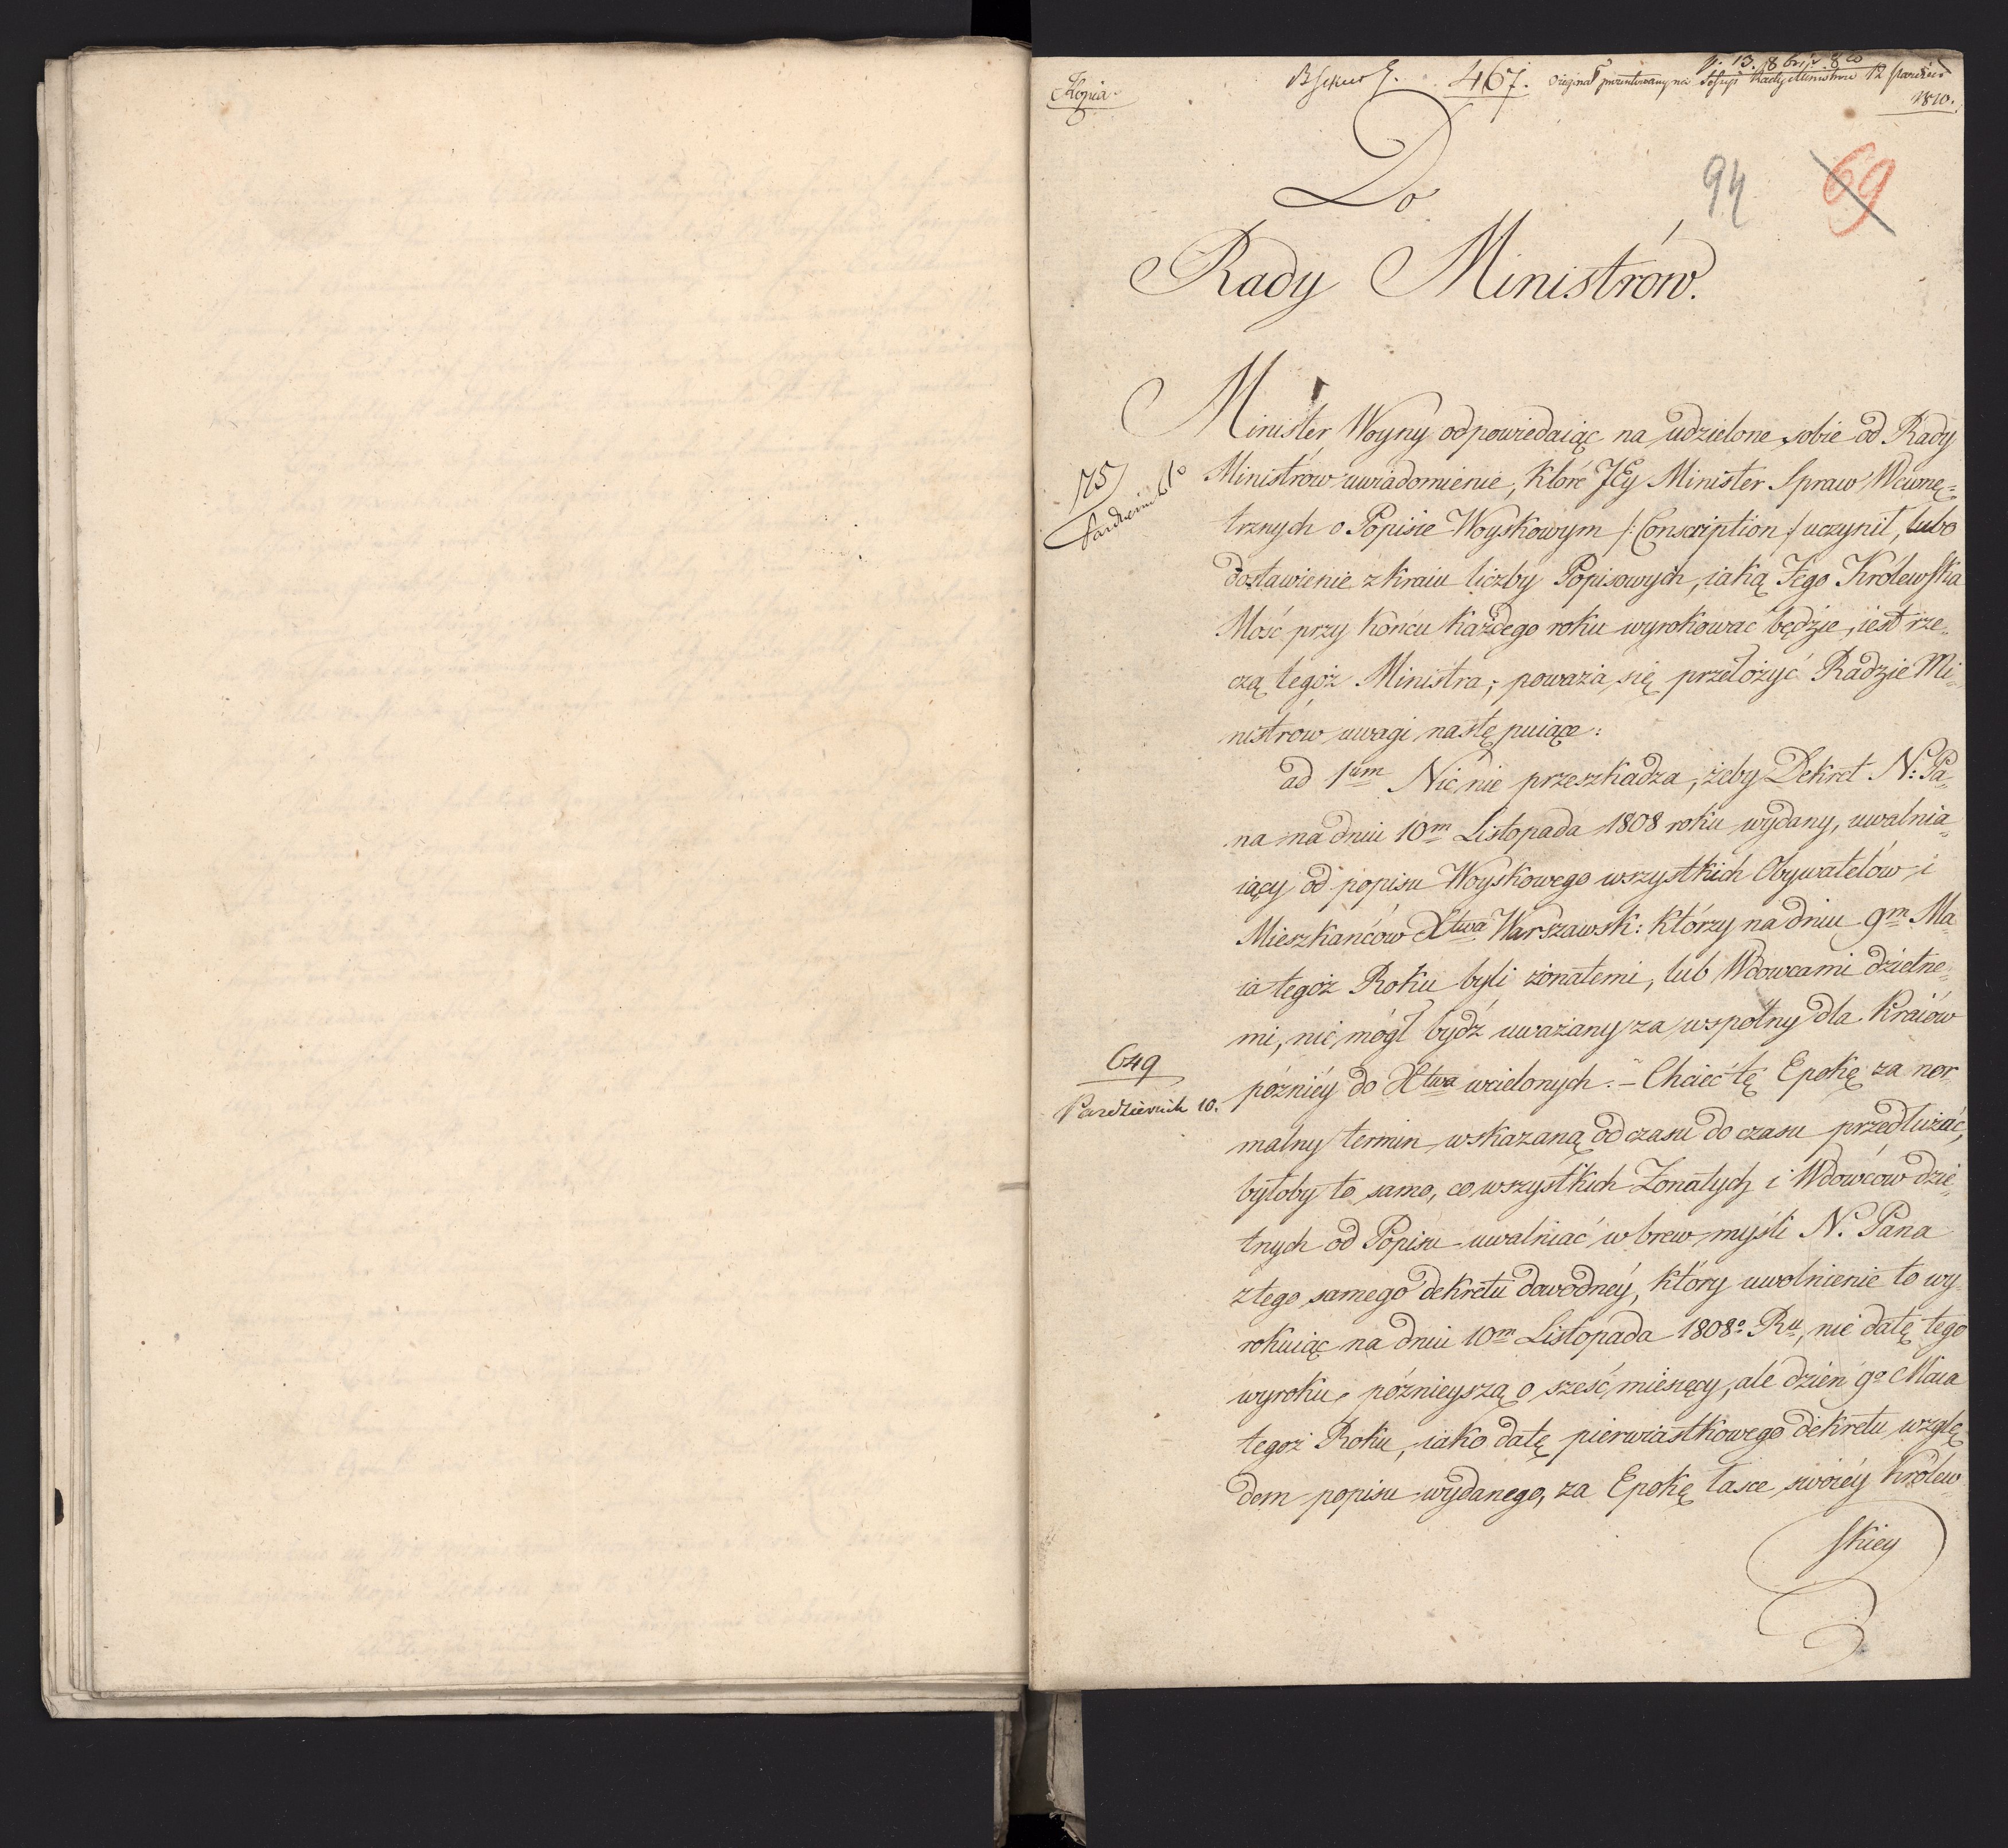 Kopia
467.
p. 13. 8br. 810
Original prezentowany na Sessyi Rady Ministrów 12 Pazdzier
1810.
94
69
Do
Rady Ministrów.
Minister Woyny odpowiedaiąc na udzielone sobie od Rady
175
Pazdziernik 1o
Ministrów uwiadomienie, które JEy Minister Spraw Wewnę=
trznych o Popisie Woyskowym /: Conscription :/ uczynił, lubo
dostawienie z kraiu liczby Popisowych, iaką Jego Królewska
Mość przy końcu każdego roku wyrokować będzie, iest rze=
czą tegoż Ministra; poważa się przełożyć Radzie Mi=
nistrów uwagi następuiące:
ad 1um Nic nie przeszkadza, żeby Dekret N: Pa=
na na dniu 10m Listopada 1808 roku wydany, uwalnia=
iący od popisu Woyskowego wszystkich Obywatelów i
Mieszkańców Xtwa Warszawsk: którzy na dniu 9m Ma=
ia tegoż Roku byli żonatemi, lub Wdowcami dzietne=
mi, nie mógł bydź uważany za wspólny dla Kraiów
649
Pazdziernik 10.
pózniéy do Xtwa wcielonych. – Chcieć tę Epokę za nor=
malny termin wskazaną od czasu do czasu przedłużać,
byłoby to samo, co wszystkich Żonatych i Wdowców dzie=
tnych od Popisu uwalniać wbrew myśli N. Pana
z tego samego dekretu dowodnéy, który uwolnienie to wy=
rokuiąc na dniu 10m Listopada 1808o Ru, nie datę tego
wyroku, póznieyszą o sześć miesięcy, ale dzień 9o Maia
tegoż Roku, iako datę pierwiastkowego dekretu wzglę=
dem popisu wydanego, za Epokę łasce swoiéy Królew=
skiey